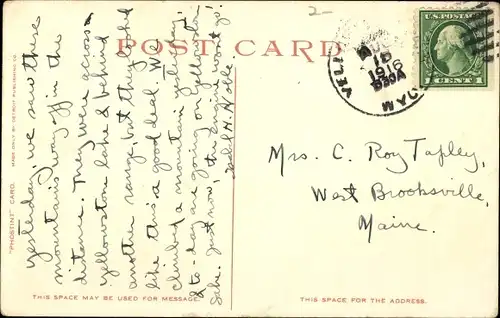 2-
POST CARD
U.S. POSTAGE
1 CENT 1
AUG
15
1916
"PHOSTINT" CARD. MADE ONLY BY DETROIT PUBLISHING CO.
Yesterday, we saw these
mountains way off in the
distance. They were across
Yellowstone lake & behind
another range, but they looked
like this a good deal. We
climbed a mountain yesterday,
& to-day are going on yellowstone
Lake. Just now, the Engine won't go.
H. Noble.
Mrs. C. Roy Tapley,
West Brooksville,
Maine.
THIS SPACE MAY BE USED FOR MESSAGE.
THIS SPACE IS FOR THE ADDRESS.